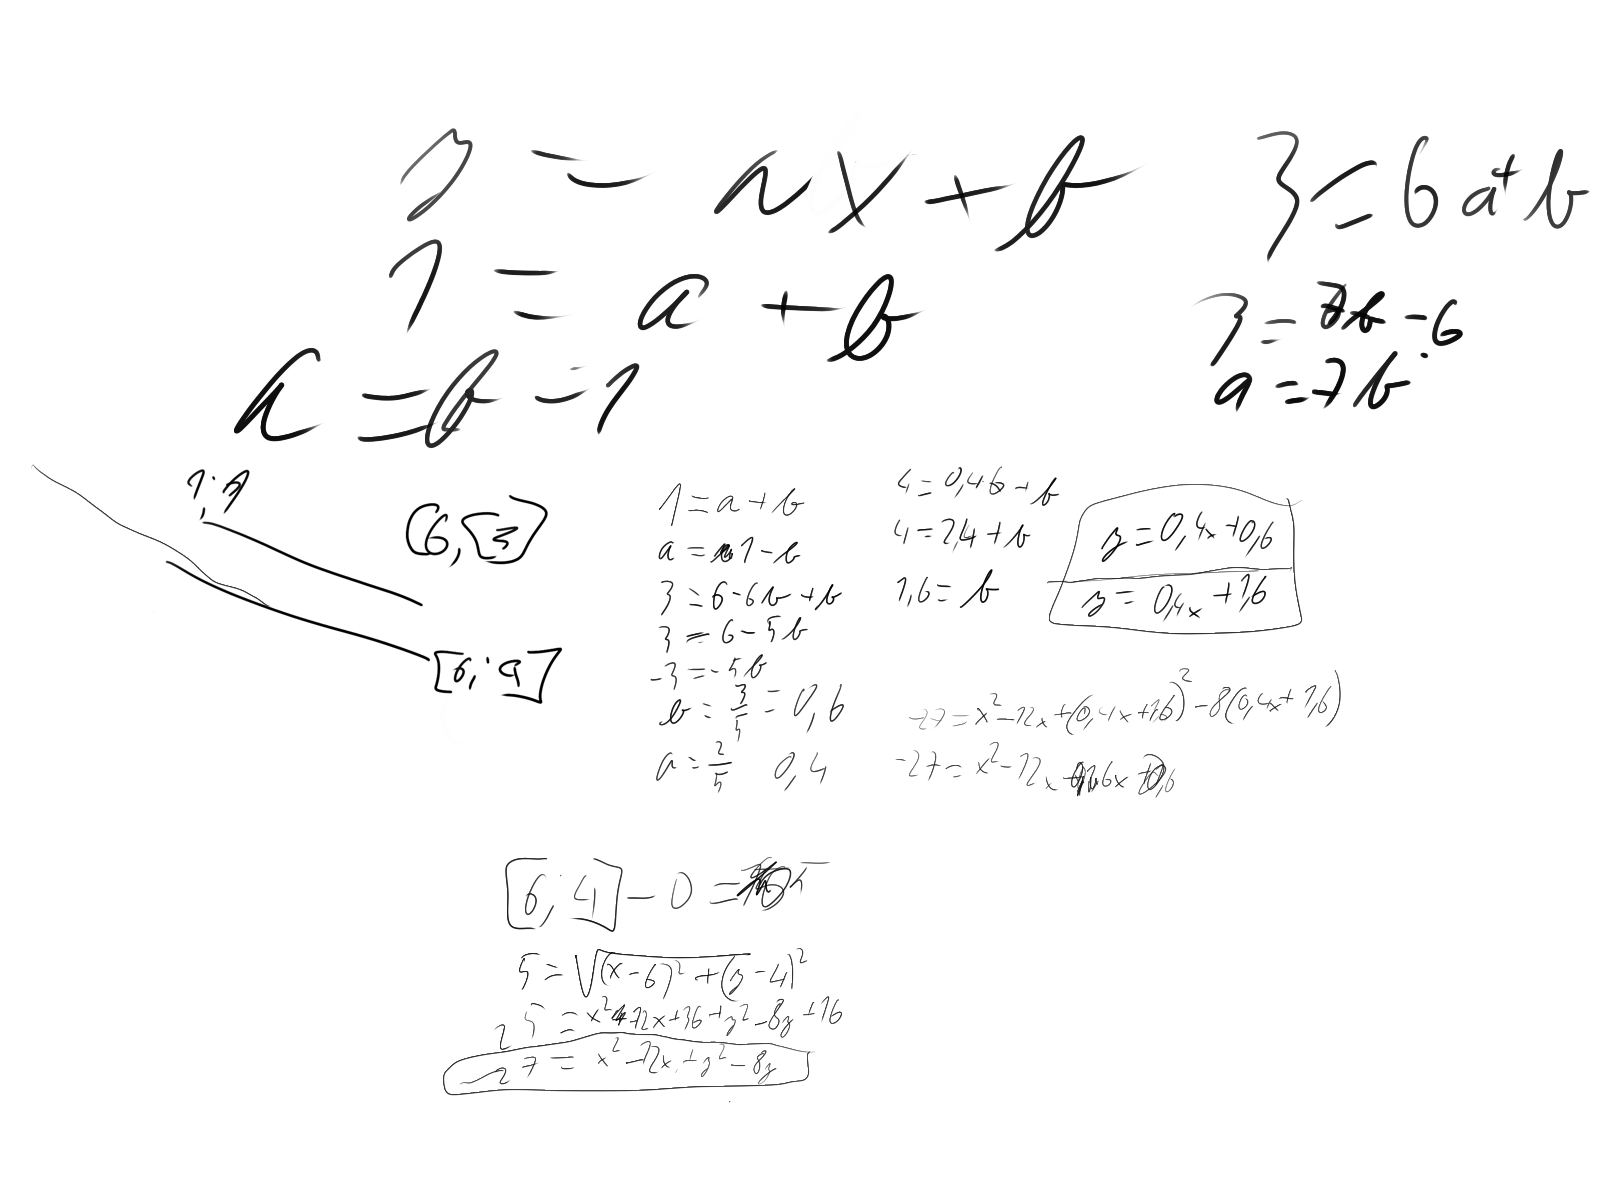 y = ax + b
3 = 6a + b
1 = a + b
3 = 7b - 6
a = b - 1
a = 7b
1; 1
(6, 3)
[6; 4]
1 = a + b
a = 1 - b
3 = 6 - 6b + b
3 = 6 - 5b
-3 = -5b
b = 3/5 = 0,6
a = 2/5 0,4
4 = 0,4·6 + b
4 = 2,4 + b
1,6 = b
y = 0,4x + 0,6
y = 0,4x + 1,6
-27 = x² - 12x + (0,4x + 1,6)² - 8(0,4x + 1,6)
-27 = x² - 12x
[6; 4] - 0 = 5
5 = √(x - 6)² + (y - 4)²
25 = x² - 12x + 36 + y² - 8y + 16
-27 = x² - 12x + y² - 8y